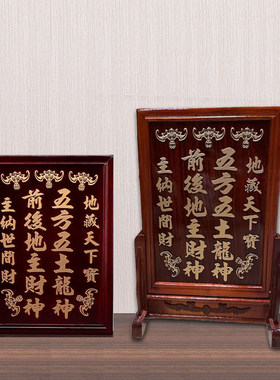 地藏天下寶
五方五土龍神
前後地主財神
主納世間財
地藏天下寶
五方五土龍神
前後地主財神
主納世間財